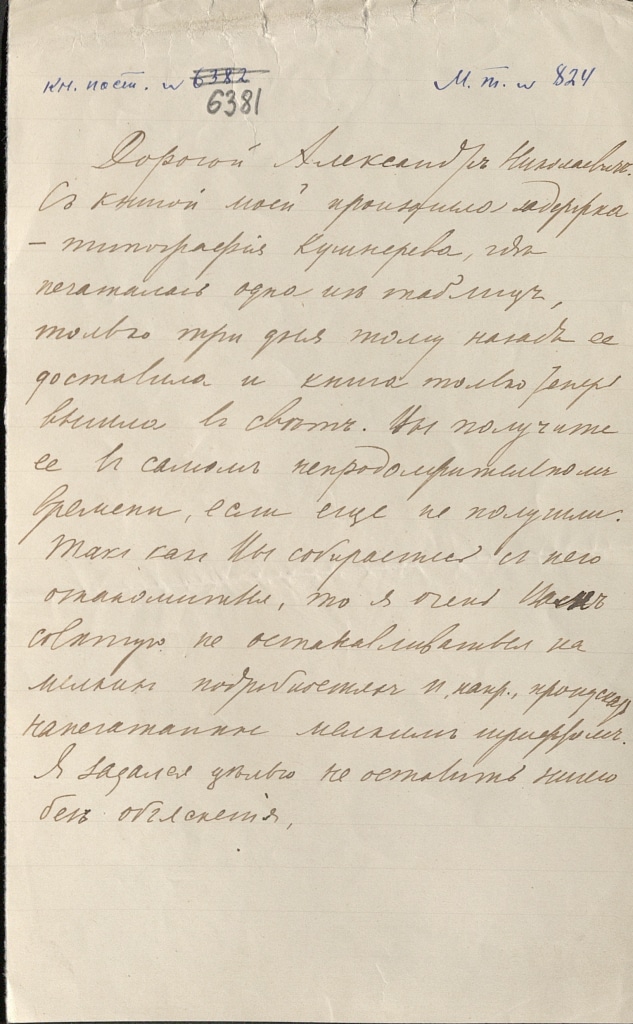 кн. пост. № 6382 М. т. № 824
6381
Дорогой Александръ Николаевичъ.
Съ книгой моей произошла задержка
– типографія Кушнерева, гдѣ
печаталась одна изъ таблицъ,
только три дня тому назадъ ее
доставила и книга только теперь
вышла въ свѣтъ. Вы получите
ее въ самомъ непродолжительномъ
времени, если еще не получили.
Такъ какъ Вы собираетесь съ нею
ознакомиться, то я очень Вамъ
совѣтую не останавливаться на
мелкихъ подробностяхъ и, напр., пропускать
напечатанное мелкимъ шрифтомъ.
Я задался цѣлью не оставить ничего
безъ объясненія,